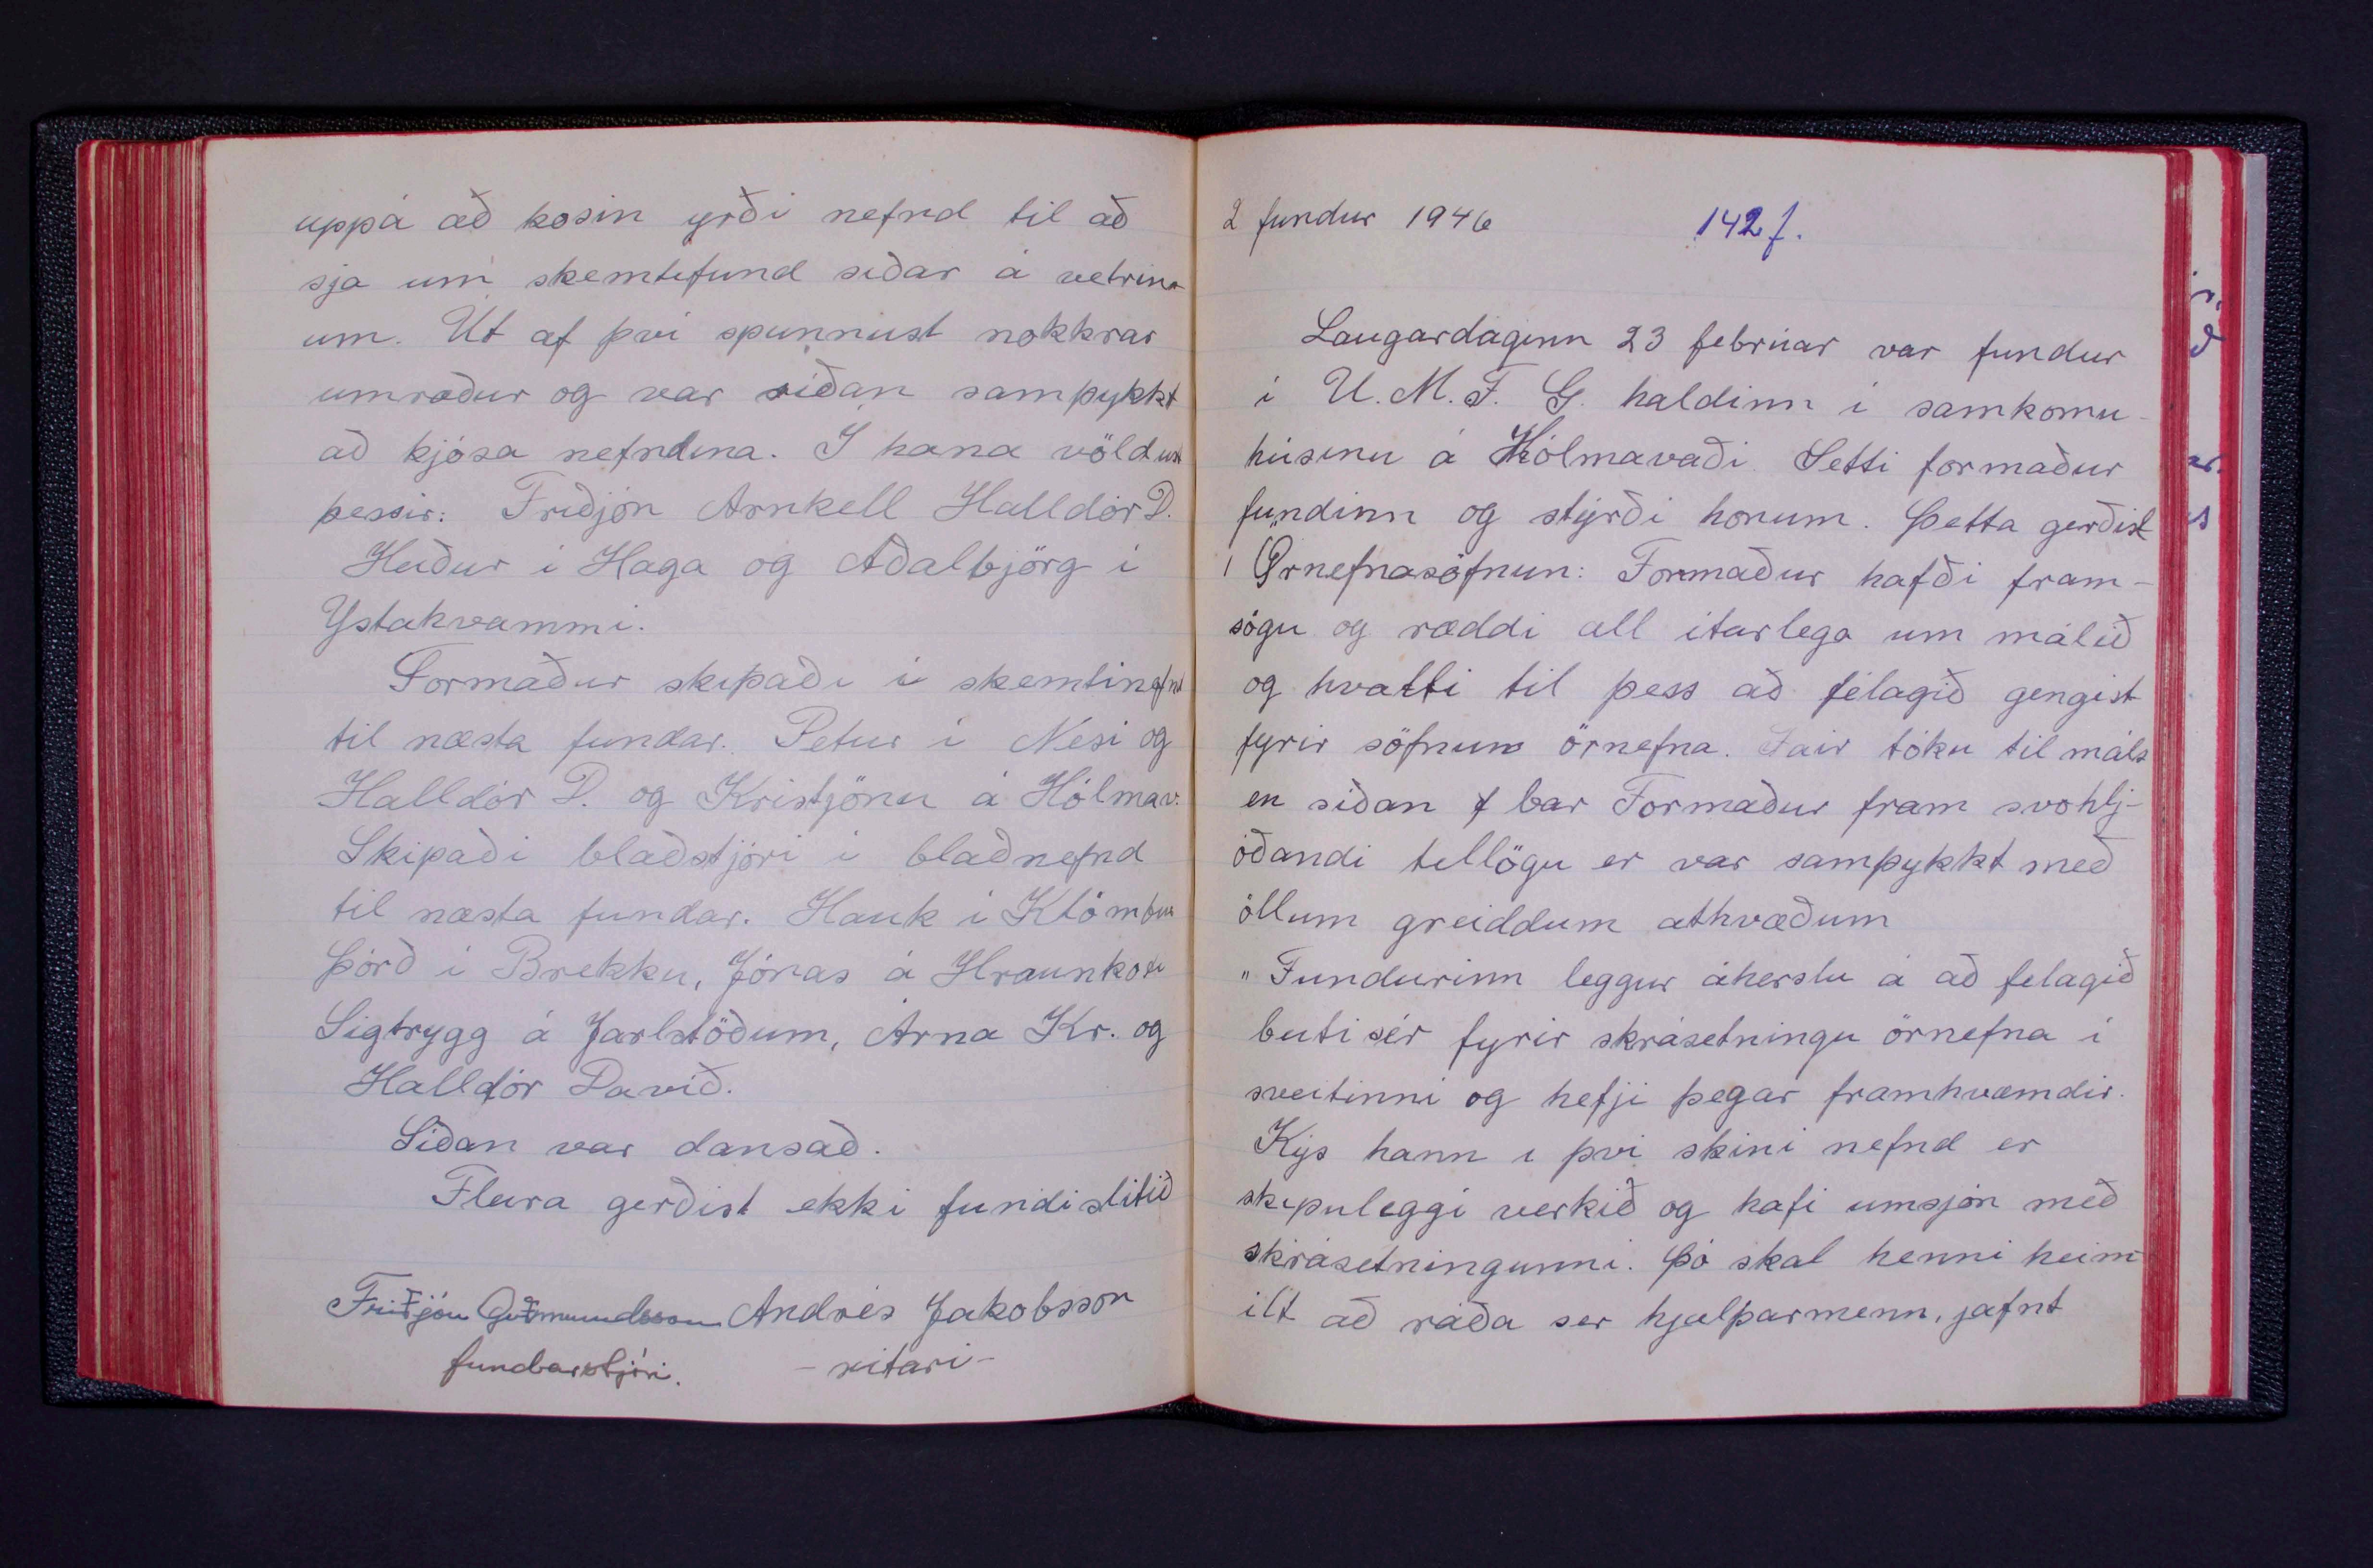 uppá að kosin yrði nefnd til að
sja um skemtifund siðar á vetrin-
um. Út af því spunnust nokkrar
umræður og var síðan samþykkt
að kjósa nefndina. I hana völdust
þessir: Friðjón Arnkell Halldór D.
Heiður i Haga og Aðalbjörg i
Ystahvammi.
Formaður skipaði i skemtinefnd
til næsta fundar. Petur i Nesi og
Halldór D. og Kristjönu á Hólmav.
Skipaði blaðstjóri i blaðnefnd
til næsta fundar. Hauk i Klömbur
Þórð i Brekku, Jónas á Hraunkoti
Sigtrygg á Jarlstöðum, Árna Kr. og
Halldór Davið.
Síðan var dansað.
Fleira gerðist ekki fundi slitið
Friðjón Guðmundsson Andrés Jakobsson
fundarstjóri. - ritari -
2 fundur 1946 142 f.
Laugardaginn 23 febrúar var fundur
i U.M.F. G. haldinn i samkomu-
húsinu á Hólmavaði. Setti formaður
fundinn og stýrði honum. Þetta gerðist
1 Örnefnasöfnun: Formaður hafði fram-
sögu og ræddi all ítarlega um málið
og hvatti til þess að félagið gengist
fyrir söfnun örnefna. Fáir tóku til máls
en siðan f bar Formaður fram svohlj-
óðandi tillögu er var samþykkt með
öllum greiddum athvæðum
"Fundurinn leggur áherslu á að felagið
beiti sér fyrir skrásetningu örnefna i
sveitinni og hefji þegar framhvæmdir.
Kýs hann i því skini nefnd er
skipuleggi verkið og hafi umsjón með
skrásetningunni. Þó skal henni heim-
ilt að ráða ser hjalparmenn, jafnt